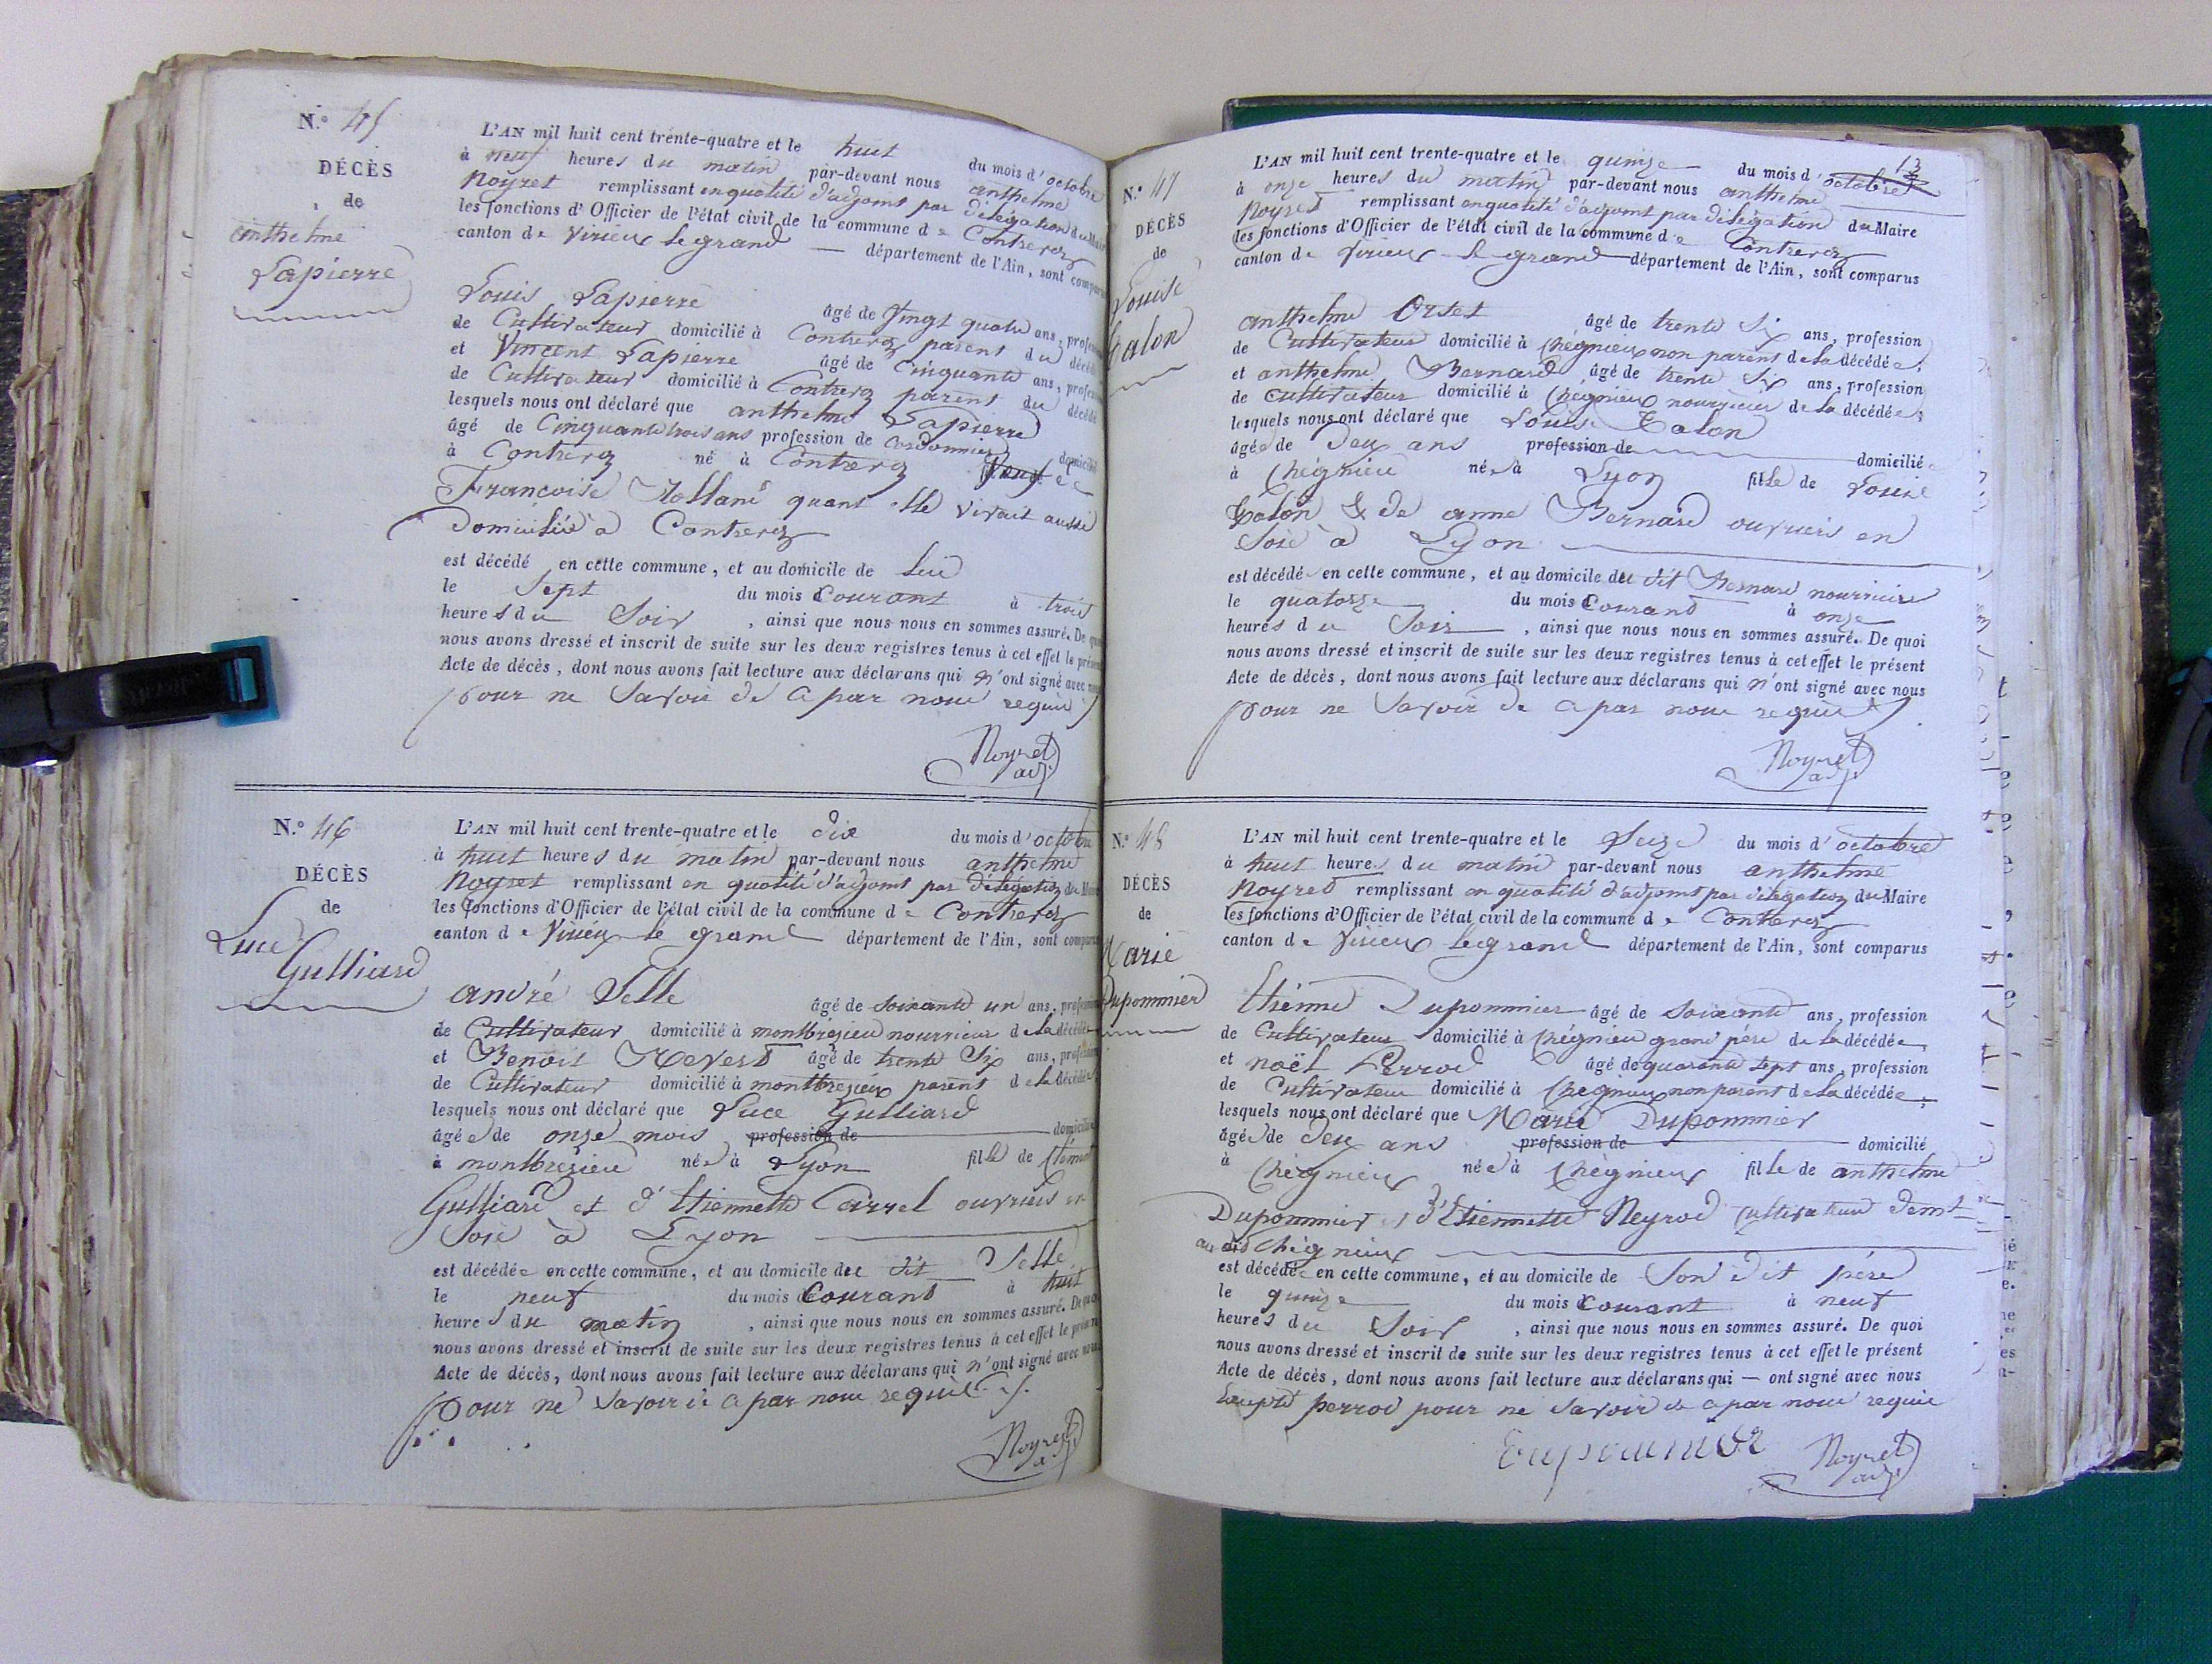 N.° 45
DÉCÈS
de
anthelme
Lapierre
L'AN mil huit cent trente-quatre et le huit du mois d'octobre
à neuf heures du matin par-devant nous anthelme
Noyret remplissant en qualité d'adjoint par délégation du Maire
les fonctions d'Officier de l'état civil de la commune de Contrevoz
canton de Virieu le grand département de l'Ain, sont comparus
Louis Lapierre âgé de Vingt quatre ans, profession
de Cultivateur domicilié à Contrevoz parent du décédé
et Vincent Lapierre âgé de Cinquante ans, profession
de Cultivateur domicilié à Contrevoz parent du décédé
lesquels nous ont déclaré que anthelme Lapierre
âgé de Cinquante trois ans profession de Cordonnier domicilié
à Contrevoz né à Contrevoz Veuf de
Françoise quant elle vivait aussi
Domiciliée à Contrevoz
est décédé en cette commune, et au domicile de lui
le Sept du mois Courant à trois
heures du Soir, ainsi que nous nous en sommes assuré. De quoi
nous avons dressé et inscrit de suite sur les deux registres tenus à cet effet le présent
Acte de décès, dont nous avons fait lecture aux déclarans qui n'ont signé avec nous
pour ne Savoir de a par nous requis
Noyret
adj.
N.° 46
DÉCÈS
de
Luce
Gulliard
L'AN mil huit cent trente-quatre et le dix du mois d'octobre
à huit heures du matin par-devant nous anthelme
Noyret remplissant en qualité d'adjoint par délégation du Maire
les fonctions d'Officier de l'état civil de la commune de Contrevoz
canton de Virieu le grand département de l'Ain, sont comparus
andré Selle âgé de soixante un ans, profession
de Cultivateur domicilié à montbrezieu nourricier de la décédée
et Benoit Revert âgé de trente Six ans, profession
de Cultivateur domicilié à montbrezieu parent de la décédée
lesquels nous ont déclaré que Luce Gulliard
âgée de onze mois profession de domicilié
à montbrezieu née à Lyon fille de Clément
Gulliard et d'Etiennette Carrel ouvriers en
Soie à Lyon
est décédée en cette commune, et au domicile du dit Selle
le neuf du mois Courant à huit
heures du matin, ainsi que nous nous en sommes assuré. De quoi
nous avons dressé et inscrit de suite sur les deux registres tenus à cet effet le présent
Acte de décès, dont nous avons fait lecture aux déclarans qui n'ont signé avec nous
pour ne Savoir de a par nous requis
Noyret
adj.
13
N.° 47
DÉCÈS
de
Louise
Calon
L'AN mil huit cent trente-quatre et le quinze du mois d'octobre
à onze heures du matin par-devant nous anthelme
Noyret remplissant en qualité d'adjoint par délégation du Maire
les fonctions d'Officier de l'état civil de la commune de Contrevoz
canton de Virieu le grand département de l'Ain, sont comparus
anthelme Orset âgé de trente Six ans, profession
de Cultivateur domicilié à Chégnieu non parent de la décédée;
et anthelme Bernard âgé de trente Six ans, profession
de cultivateur domicilié à Chégnieu nourricier de la décédée;
lesquels nous ont déclaré que Louise Calon
âgée de Deux ans profession de domicilié
à Chégnieu née à Lyon fille de Louis
Calon & de anne Bernard ouvriers en
Soie à Lyon
est décédé en cette commune, et au domicile du dit Bernard nourricier
le quatorze du mois Courant à onze
heures du Soir, ainsi que nous nous en sommes assuré. De quoi
nous avons dressé et inscrit de suite sur les deux registres tenus à cet effet le présent
Acte de décès, dont nous avons fait lecture aux déclarans qui n'ont signé avec nous
pour ne Savoir de a par nous requis
Noyret
adj.
N.° 48
DÉCÈS
de
Marie
Dupommier
L'AN mil huit cent trente-quatre et le Seize du mois d'octobre
à huit heures du matin par-devant nous anthelme
Noyret remplissant en qualité d'adjoint par délégation du Maire
les fonctions d'Officier de l'état civil de la commune de Contrevoz
canton de Virieu le grand département de l'Ain, sont comparus
Etienne Dupommier âgé de Soixante ans, profession
de Cultivateur domicilié à Chégnieu grand père de la décédée,
et noël Perrod âgé de quarante sept ans, profession
de Cultivateur domicilié à Chegnieu non parent de la décédée;
lesquels nous ont déclaré que Marie Dupommier
âgée de Deux ans profession de domicilié
à Chégnieu née à Chégnieu fille de anthelme
Dupommier et d'Etiennette Neyrod Cultivateur demt
au dit Chégnieu
est décédée en cette commune, et au domicile de Son dit père
le quinze du mois Courant à neuf
heures du Soir, ainsi que nous nous en sommes assuré. De quoi
nous avons dressé et inscrit de suite sur les deux registres tenus à cet effet le présent
Acte de décès, dont nous avons fait lecture aux déclarans qui — ont signé avec nous
Excepté perrod pour ne Savoir de a par nous requis
Dupoumier Noyret
adj.